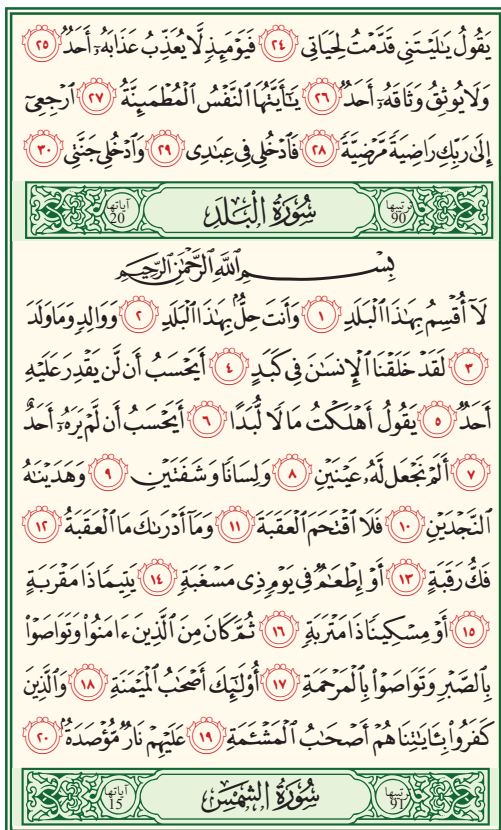 يَقُولُ يَـٰلَيْتَنِى قَدَّمْتُ لِحَيَاتِى ٢٤ فَيَوْمَئِذٍ لَّا يُعَذِّبُ عَذَابَهُۥٓ أَحَدٌ ٢٥
وَلَا يُوثِقُ وَثَاقَهُۥٓ أَحَدٌ ٢٦ يَـٰٓأَيَّتُهَا ٱلنَّفْسُ ٱلْمُطْمَئِنَّةُ ٢٧ ٱرْجِعِىٓ
إِلَىٰ رَبِّكِ رَاضِيَةً مَّرْضِيَّةً ٢٨ فَٱدْخُلِى فِى عِبَـٰدِى ٢٩ وَٱدْخُلِى جَنَّتِى ٣٠
ترتيبها 90 سُورَةُ الْبَلَدِ آياتها 20
بِسْمِ ٱللَّهِ ٱلرَّحْمَـٰنِ ٱلرَّحِيمِ
لَآ أُقْسِمُ بِهَـٰذَا ٱلْبَلَدِ ١ وَأَنتَ حِلٌّۢ بِهَـٰذَا ٱلْبَلَدِ ٢ وَوَالِدٍ وَمَا وَلَدَ
٣ لَقَدْ خَلَقْنَا ٱلْإِنسَـٰنَ فِى كَبَدٍ ٤ أَيَحْسَبُ أَن لَّن يَقْدِرَ عَلَيْهِ
أَحَدٌ ٥ يَقُولُ أَهْلَكْتُ مَالًا لُّبَدًا ٦ أَيَحْسَبُ أَن لَّمْ يَرَهُۥٓ أَحَدٌ
٧ أَلَمْ نَجْعَل لَّهُۥ عَيْنَيْنِ ٨ وَلِسَانًا وَشَفَتَيْنِ ٩ وَهَدَيْنَـٰهُ
ٱلنَّجْدَيْنِ ١٠ فَلَا ٱقْتَحَمَ ٱلْعَقَبَةَ ١١ وَمَآ أَدْرَىٰكَ مَا ٱلْعَقَبَةُ ١٢
فَكُّ رَقَبَةٍ ١٣ أَوْ إِطْعَـٰمٌ فِى يَوْمٍ ذِى مَسْغَبَةٍ ١٤ يَتِيمًا ذَا مَقْرَبَةٍ
١٥ أَوْ مِسْكِينًا ذَا مَتْرَبَةٍ ١٦ ثُمَّ كَانَ مِنَ ٱلَّذِينَ ءَامَنُوا۟ وَتَوَاصَوْا۟
بِٱلصَّبْرِ وَتَوَاصَوْا۟ بِٱلْمَرْحَمَةِ ١٧ أُو۟لَـٰٓئِكَ أَصْحَـٰبُ ٱلْمَيْمَنَةِ ١٨ وَٱلَّذِينَ
كَفَرُوا۟ بِـَٔايَـٰتِنَا هُمْ أَصْحَـٰبُ ٱلْمَشْـَٔمَةِ ١٩ عَلَيْهِمْ نَارٌ مُّؤْصَدَةٌۢ ٢٠
ترتيبها 91 سُورَةُ الشَّمْسِ آياتها 15